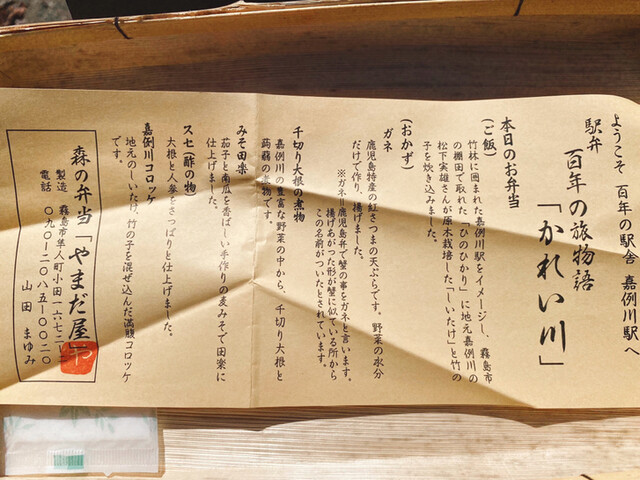 ようこそ 百年の駅舎 嘉例川駅へ
駅弁 百年の旅物語
「かれい川」
本日のお弁当
(ご飯)
竹林に囲まれた嘉例川駅をイメージし、霧島市
の棚田で取れた「ひのひかり」に地元嘉例川の
松下実雄さんが原木栽培した「しいたけ」と竹の
子を炊き込みました。
(おかず)
ガネ
鹿児島特産の紅さつまの天ぷらです。野菜の水分
だけで作り、揚げました。
※ガネ=鹿児島弁で蟹の事をガネと言います。
揚げあがった形が蟹に似ている所から
この名前がついたとされています。
千切り大根の煮物
嘉例川の豊富な野菜の中から、千切り大根と
蒟蒻の煮物です。
みそ田楽
茄子と南瓜を香ばしい手作りの麦みそで田楽に
仕上げました。
スセ(酢の物)
大根と人参をさっぱりと仕上げました。
嘉例川コロッケ
地元のしいたけ、竹の子を混ぜ込んだ満腹コロッケ
です。
森の弁当「やまだ屋」
や
製造 霧島市隼人町小田一六七二ー二
電話 〇九〇ー二〇八五ー〇〇二〇
山田 まゆみ